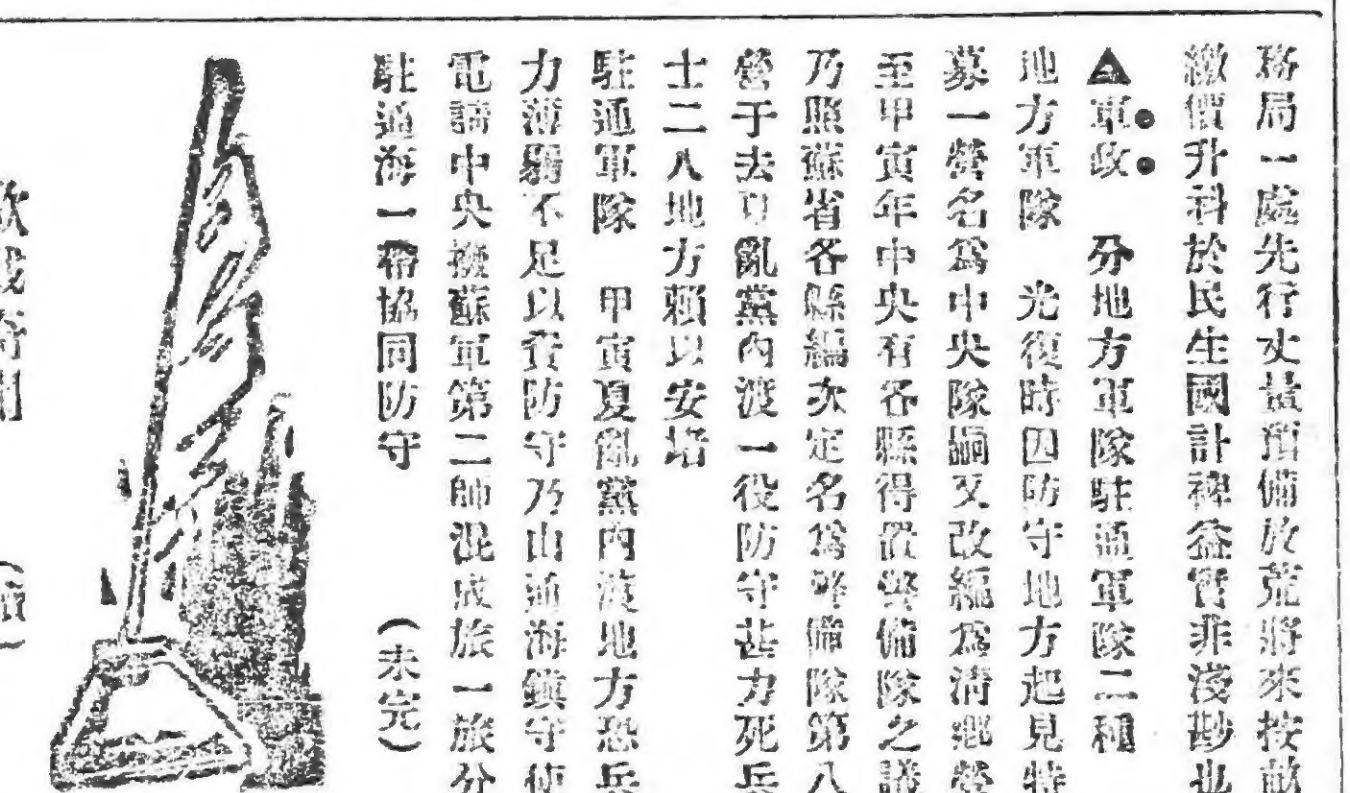 務局一處先行丈量預備放荒將來按畝
繳價升科於民生國計裨益實非淺尠也
▲軍政　分地方軍隊駐通軍隊二種
地方軍隊　光復時因防守地方起見特
募一營名為中央隊嗣又改編為清鄉營
至甲寅年中央有各縣得置警備隊之議
乃照蘇省各縣編次定名為警備隊第八
營于去夏亂黨內渡一役防守甚力死兵
士二八地方賴以安堵
駐通軍隊　甲寅夏亂黨內渡地方恐兵
力薄弱不足以資防守乃由通海鎮守使
電請中央撥蘇軍第二師混成旅一旅分
駐通海一帶協同防守　（未完）